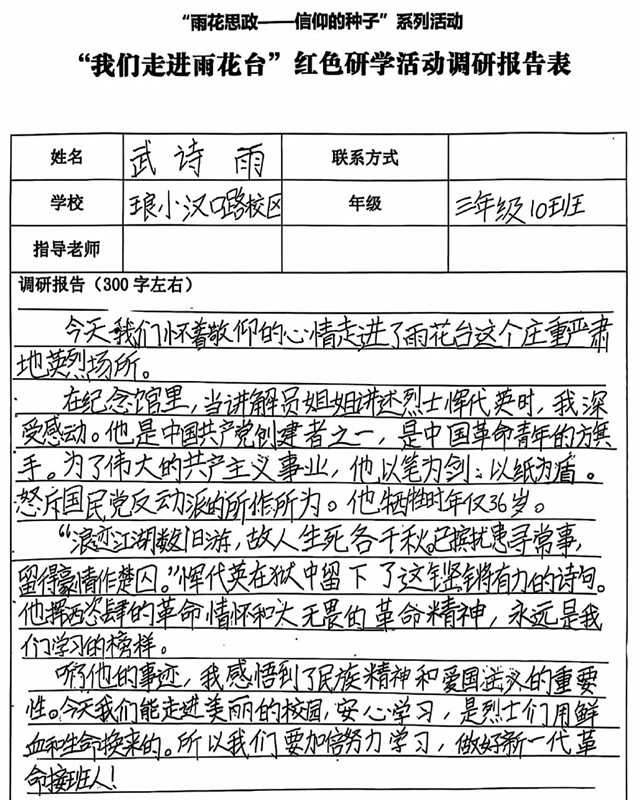 “雨花思政——信仰的种子”系列活动
“我们走进雨花台”红色研学活动调研报告表
姓名 武诗雨 联系方式
学校 琅小汉口路校区 年级 三年级10班
指导老师
调研报告（300字左右）
今天我们怀着敬仰的心情走进了雨花台这个庄重严肃
地英烈场所。
在纪念馆里，当讲解员姐姐讲述烈士恽代英时，我深
受感动。他是中国共产党创建者之一，是中国革命青年的方旗
手。为了伟大的共产主义事业，他以笔为剑；以纸为盾。
怒斥国民党反动派的所作所为。他牺牲时年仅36岁。
“浪迹江湖数旧游，故人生死各千秋。已摈扰患寻常事，
留得豪情作楚囚。”恽代英在狱中留下了这铿锵有力的诗句。
他挥洒恣肆的革命情怀和大无畏的革命精神，永远是我
们学习的榜样。
听了他的事迹，我感悟到了民族精神和爱国主义的重要
性。今天我们能走进美丽的校园，安心学习，是烈士们用鲜
血和生命换来的。所以我们要加倍努力学习，做好新一代革
命接班人！